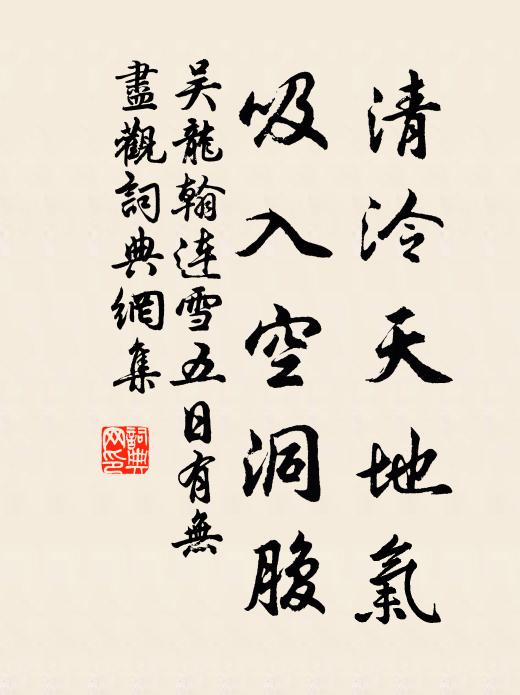 清泠天地氣
吸入空洞腹
吴龍翰連雪五日有無
盡觀詞典網集
詞典网印